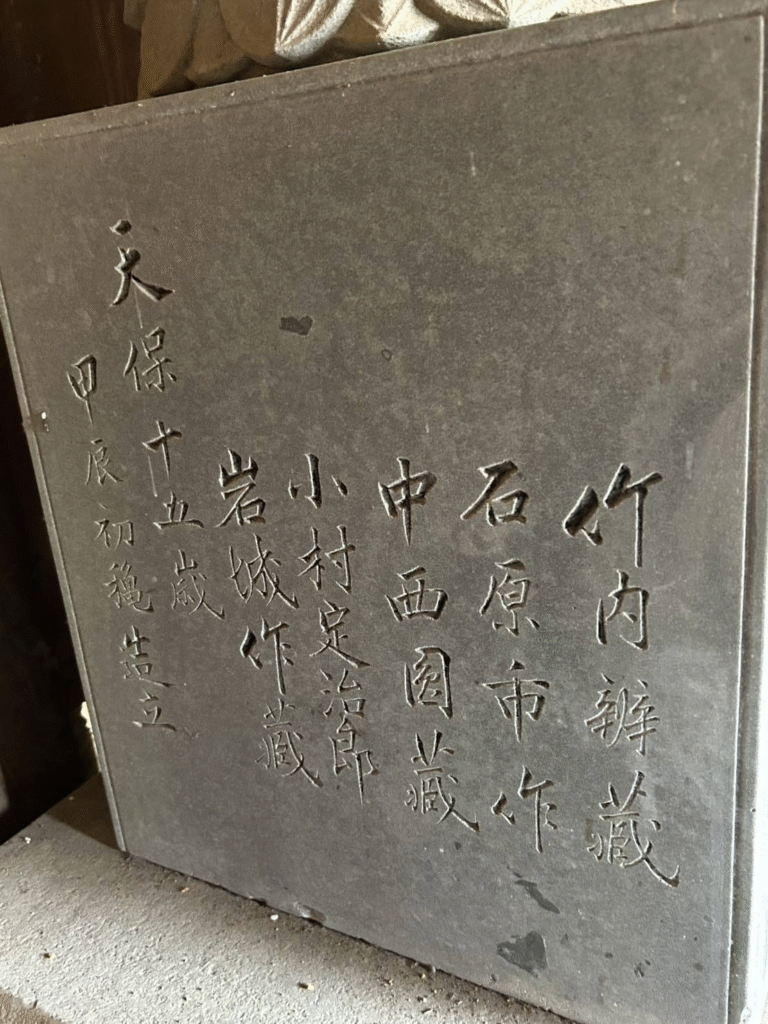 竹内辨藏
石原市作
中西圓藏
小村定治郎
岩城作藏
天保十五歳
甲辰初穐造立